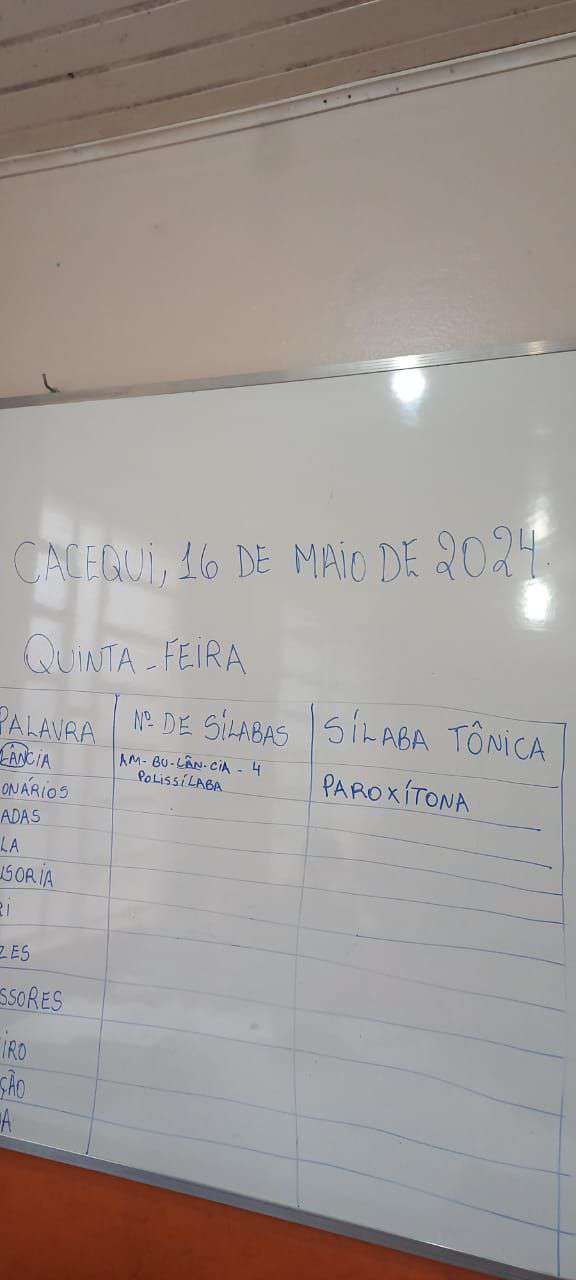 CACEQUI, 16 DE MAIO DE 2024.
QUINTA-FEIRA
PALAVRA Nº DE SÍLABAS SÍLABA TÔNICA
LÂNCIA AM-BU-LÂN-CIA - 4
POLISSÍLABA
PAROXÍTONA
ONÁRIOS
ADAS
LA
USORIA
RI
ZES
SSORES
IRO
ÇÃO
A